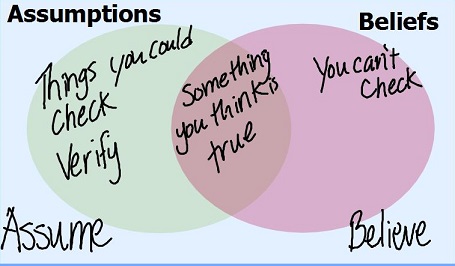 Assumptions
Beliefs
Things you could
check
Verify
Something
you think is
true
You can't
Check
Assume
Believe